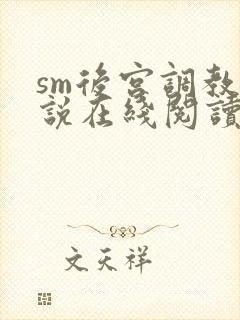 sm後宮調教
說在綫閱讀
文天祥